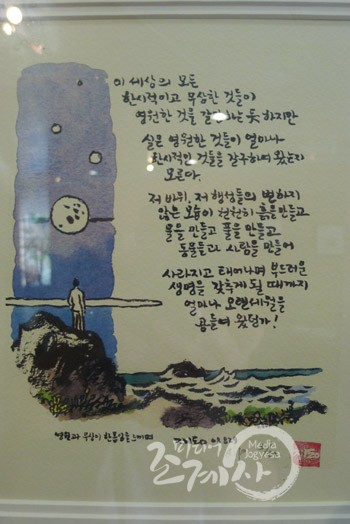 이 세상의 모든
한시적이고 무상한 것들이
영원한 것을 갈망하는 듯 하지만
실은 영원한 것들이 얼마나
한시적인 것들을 갈구하여 왔는지
모른다.
저 바위, 저 행성들의 변하지
않은 모습이 천천히 흙을 만들고
물을 만들고 풀을 만들고
동물들과 사람을 만들어
사라지고 태어나며 부드러운
생명을 갖추게 될 때까지
얼마나 오랜 세월을
공들여 왔던가!
영원과 무상이 한몸임을 느끼며
미디어
조계사
Media
Jogyesa